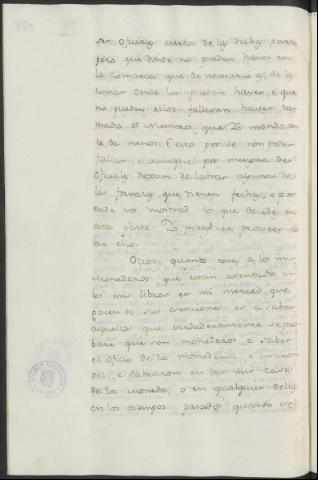 ser Oficiales ciertos de la dicha parte,
pero que donde no pueden haver en
la comarca que de necesario es de lo
tomar donde los pueden haver, e que
no pueden ellos fallaran haver to
mado el numero que Yo mando, an
te de menos: E esto por se non poder
fallar, e aunque por mengua de
Oficiales dexan de labrar algunas de
las fornazas que tienen fechas, e por
ende no mostrad lo que decides en
esta parte. Yo mandaré proveer so
bre ello.
Otrosi quanto toca a los mis
Monederos que estan asentados en
los mis libros es mi merced, que
gocen de sus esenciones es a saber
aquellos que verdaderamente se pro
bare que son monederos, e saben
el oficio de la monederia, e usaron
del, e labraron en la mi casa
de la moneda, o en qualquier dellas
en los tiempos pasados quando se